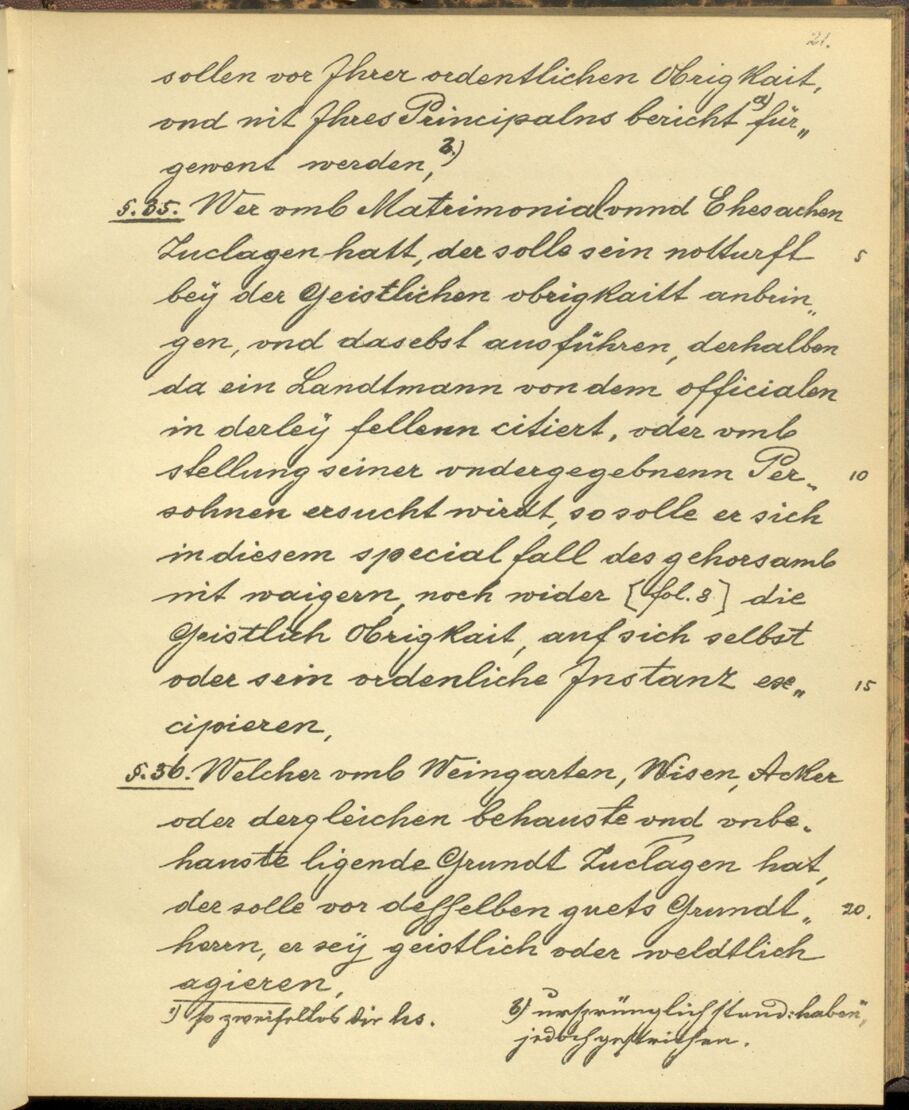 21.
sollen vor Ihrer ordentlichen Obrigkait,
vnd nit Ihres Principalns bericht a) für„
gewent werden, b)
§. 35. Wer vmb Matrimonial vnnd Ehesachen
Zuclagen hatt, der solle sein notturft 5
beÿ der Geistlichen obrigkaitt anbrin„
gen, vnd dasebst ausführen, derhalben
da ein Landtmann von dem officialen
in derleÿ fellenn citiert, oder vmb
stellung seiner vndergegebnenn Per„ 10
sohnen ersucht wirdt, so solle er sich
in diesem special fall des gehorsamb
nit waigern, noch wider [fol. 8] die
Geistlich Obrigkait, auf sich selbst
oder sein ordenliche Instanz ex„ 15
cipieren,
§. 36. Welcher vmb Weingarten, Wisen, Acker
oder dergleichen behauste vnd vnbe„
hauste ligende Grundt Zuclagen hat,
der solle vor desselben guets Grundt„ 20.
herrn, er seÿ geistlich oder weldtlich
agieren,
a) so zweifellos die hs.
b) ursprünglich stand: „haben“,
jedoch gestrichen.